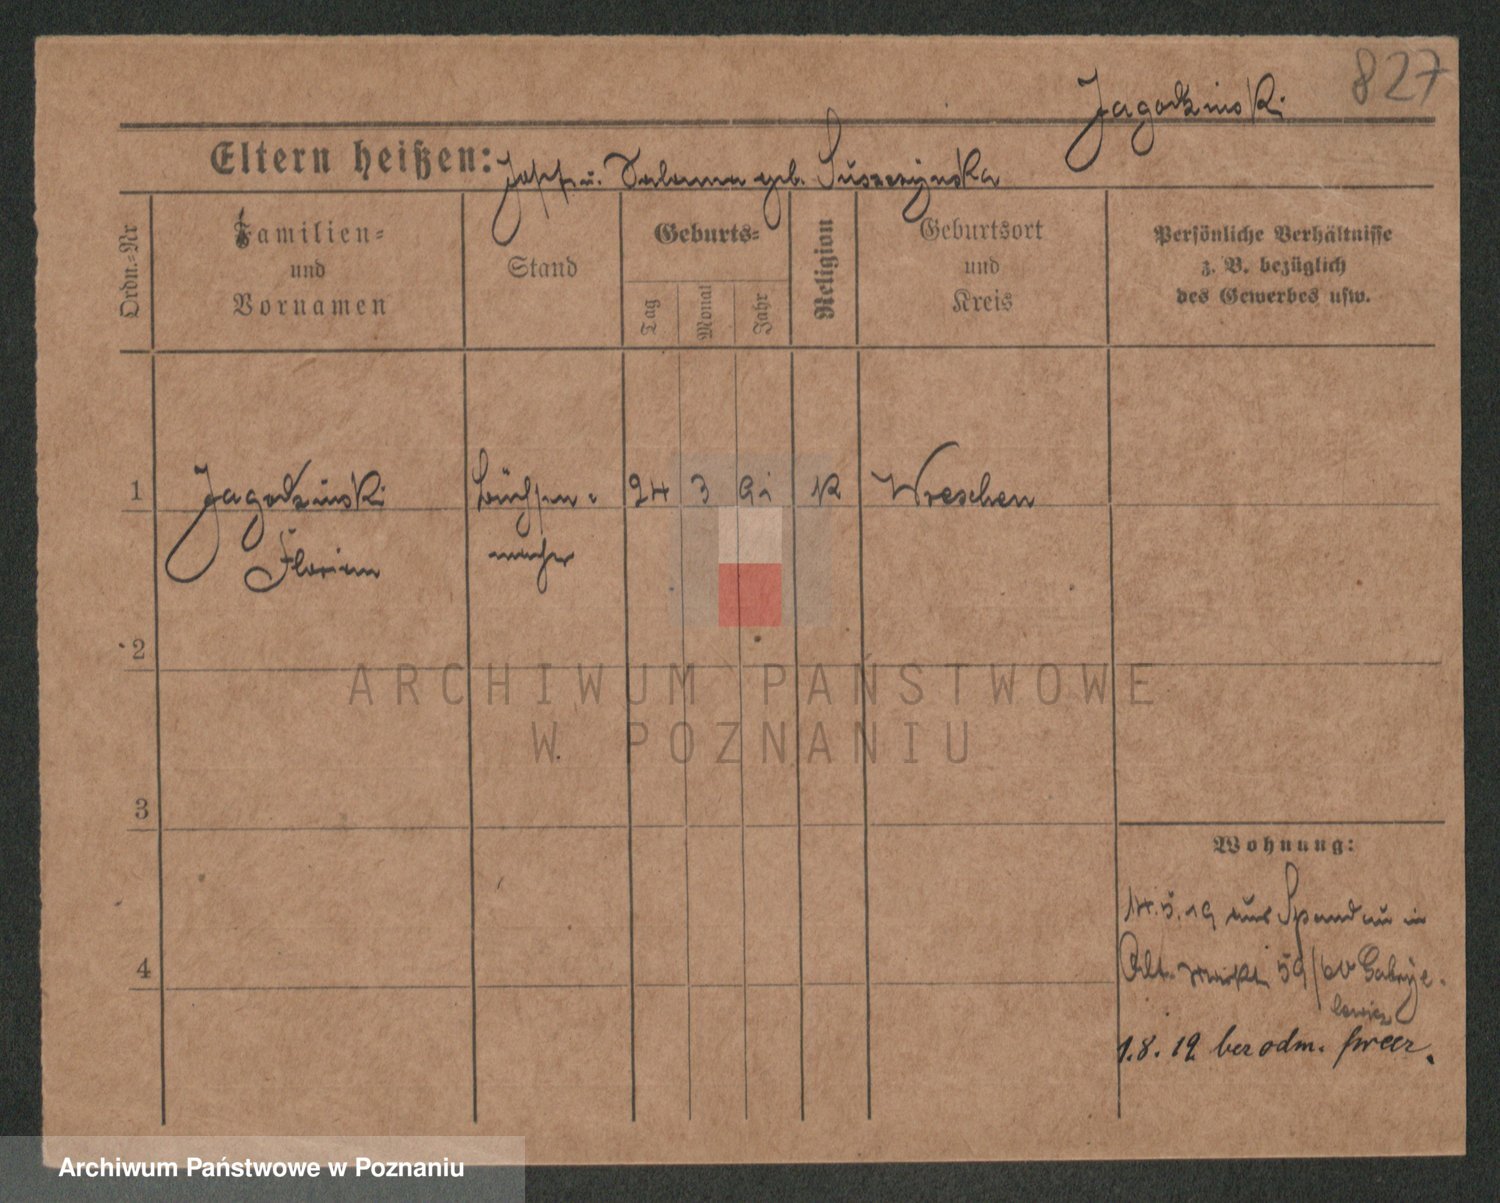 827
Jagodzinski
Eltern heißen: Josef u. Salomea geb. Suszczynska
Ordn.-Nr
Familien-
und
Vornamen
Stand
Geburts-
Tag
Monat
Jahr
Religion
Geburtsort
und
Kreis
Persönliche Verhältnisse
z. B. bezüglich
des Gewerbes usw.
1 Jagodzinski Büchsen- 24 3 91 K Wreschen
Florian macher
2
3
4
Wohnung:
14.5.19 aus Spandau in
Alt. Markt 59/60 Gabrye-
lewicz
1.8.19 bez odm.
ARCHIWUM PAŃSTWOWE
W POZNANIU
Archiwum Państwowe w Poznaniu